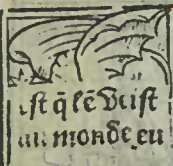 ist q̄ lē veist
au monde eu